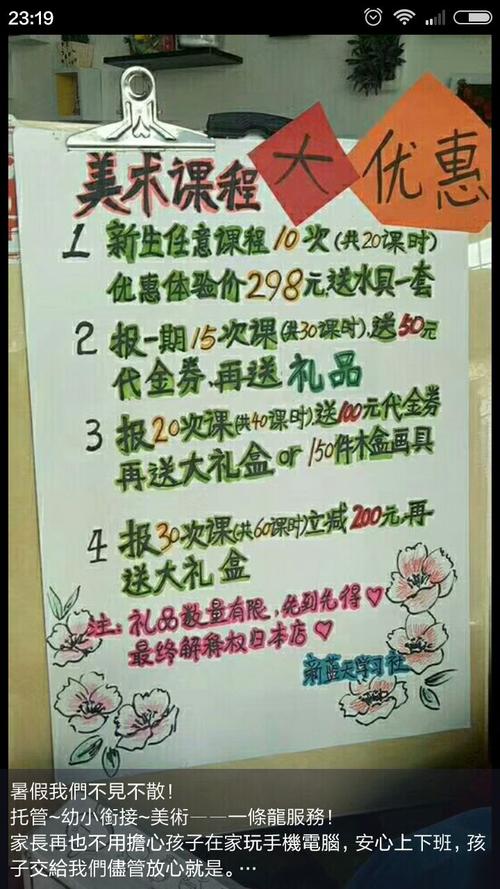 23:19
美术课程大优惠
1 新生任意课程10次(共20课时)
优惠体验价298元.送水具一套
2 报一期15次课(共30课时).送50元
代金券.再送礼品
3 报20次课(共40课时).送100元代金券
再送大礼盒or 150件木盒画具
4 报30次课(共60课时)立减200元.再
送大礼盒
注:礼品数量有限,先到先得♡
最终解释权归本店♡
新蓝天学习社
暑假我們不見不散!
托管~幼小銜接~美術——一條龍服務!
家長再也不用擔心孩子在家玩手機電腦，安心上下班，孩
子交給我們儘管放心就是。…